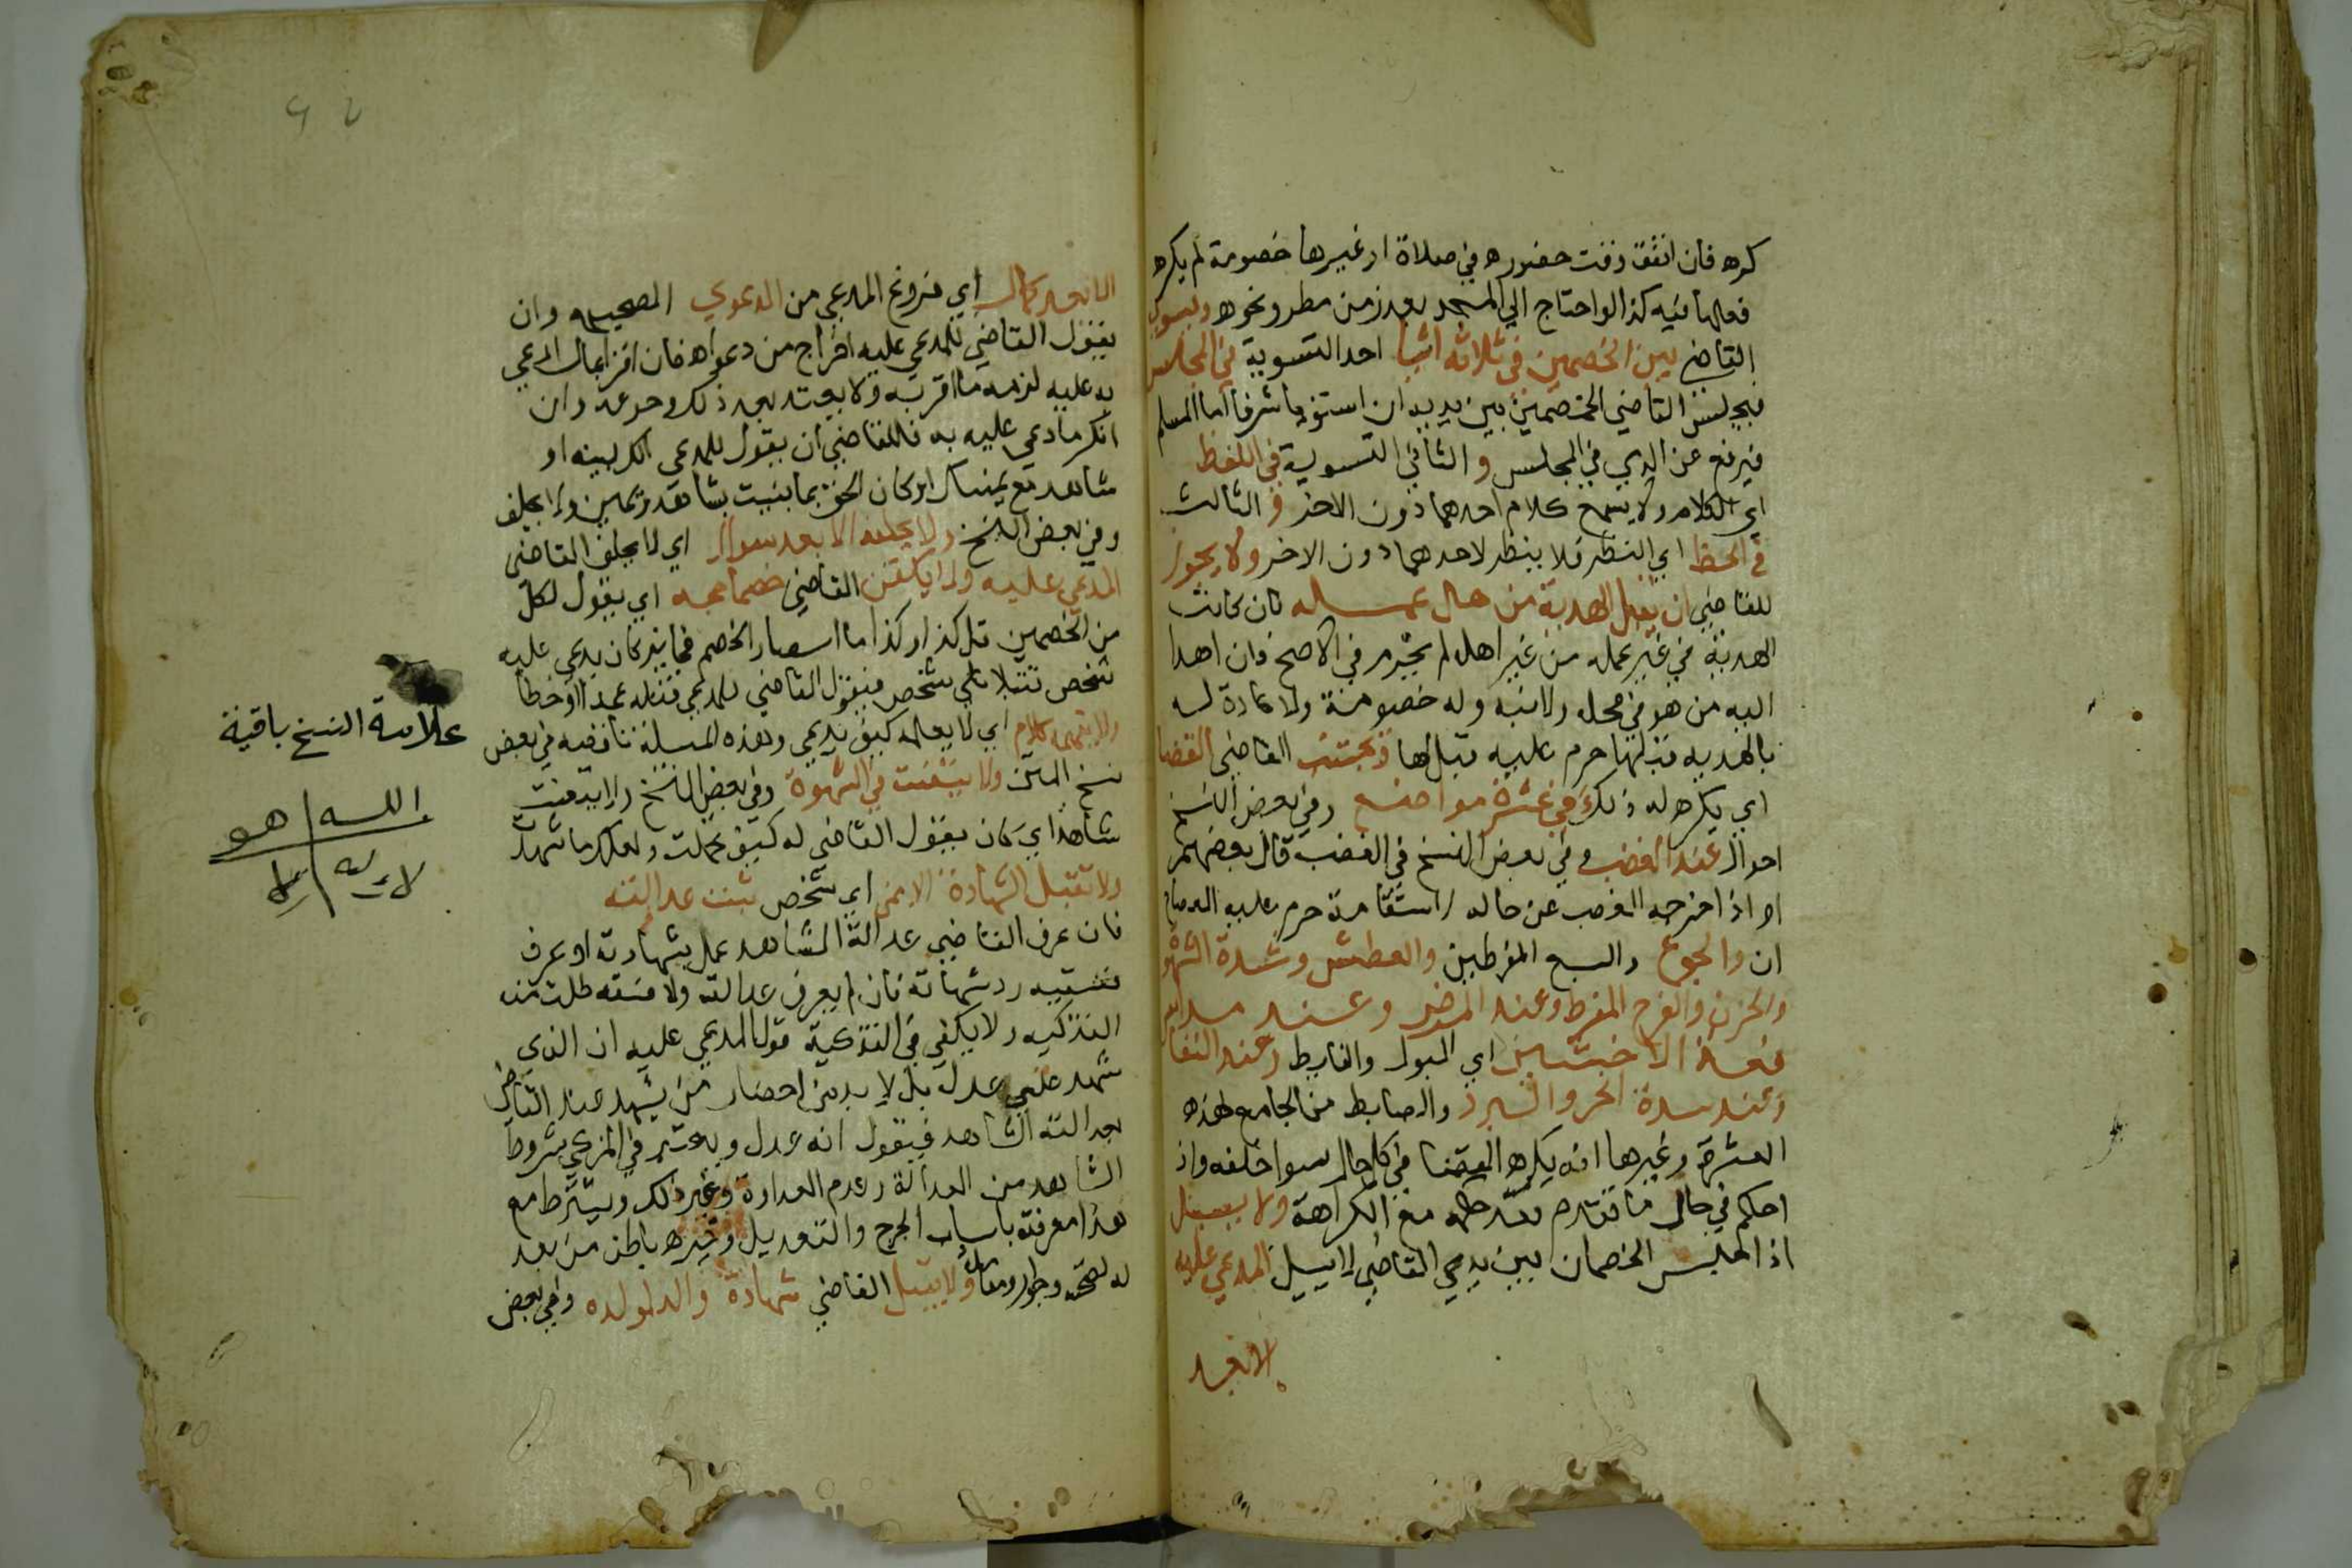 كره فان اتفق وقت حضوره في صلاة او غيرها خصومة لم يكره
فصلها فيه كذا لو احتاج الي المسجد بعذر من مطر ونحوه ويسوي
القاضي بين الخصمين في ثلاثة اشيا احدا التسوية في المجلس
فيجلس القاضي الخصمين بين يديه ان استويا شرفا اما المسلم
فيرفع عن الذمي في المجلس و الثاني التسوية في اللفظ
اي الكلام ولا يسمع كلام احدهما دون الاخر و الثالث
في اللحظ اي النظر فلا ينظر لاحدهما دون الاخر ولا يجوز
للقاضي ان يقبل الهدية من حال عمله فان كانت
الهدية في غير عمله من غير اهله لم يحرم في الاصح وان اهدا
اليه من هو في محل ولايته وله خصومة ولا عادة له
بالهديه قبلها حرم عليه قبولها ويجتنب القاضي القضا
اي يكره له ذلك في عشرة مواضع وفي بعض النسخ
احوال عند الغضب وفي بعض النسخ في الغضب قال بعضهم
او اذا اخرجه الغضب عن حاله استقامة حرم عليه القضا
ان والجوع والشبع المفرطين والعطش وشدة الشهوة
والحزن والفرح المفرط وعند المرض وعند مدافعة
الاخبثين اي البول والغايط وعند النعاس
وعند شدة الحر والبرد والضابط من الجامع لهذه
العشرة وغيرها انه يكره القضا في كل حال يسوا خلقه واذا
احكم في حال مما تقدم نفذ حكمه مع الكراهة ولا يسيل
اذا جلس الخصمان بين يدي القاضي لا يسيل المدعي عليه
الا بعد
الا بعد كمال اي فروغ المدعي من الدعوي الصحيحه وان
يقول القاضي للمدعي عليه اخراج من دعواه فان اقر بما ادعي
به عليه لزمه ما اقر به ولا يعتد بعد ذلك رجوعه وان
انكر ما ادعي عليه به فللقاضي ان يقول للمدعي الك بينه او
شاهد مع يمينك ان كان الحق مما يثبت بشاهد ويمين ولا يحلف
وفي بعض النسخ ولا يحلفه الا بعد سوال اي لا يحلف القاضي
المدعي عليه ولا يلقن القاضي خصما حجه اي يقول لكل
من الخصمين قل كذا وكذا اما استفسار الخصم فجايز كان يدعي عليه
شخص قتلا علي شخص فيقول القاضي للمدعي قتله عمدا او خطا
ولا يفهمه كلام اي لا يعلمه كيف يدعي وهذه المسيلة ناقصه في بعض
نسخ المتن ولا يتعنت في الشهود وفي بعض النسخ ولا يتعنت
شاهدا اي كان يقول القاضي له كيف تحملت ولعلك ما شهدت
ولا تقبل الشهادة الا ممن اي شخص ثبتت عدالته
فان عرف القاضي عدالة الشاهد عمل بشهادته او عرف
فسقه رد شهادته فان لم يعرف عدالته ولا فسقه طلب منه
التزكيه ولا يكفي في التزكية قول المدعي عليه ان الذي
شهد علي عدل بل لا بد من احضار من يشهد عند القاضي
بعدالته الشاهد فيقول انه عدل ويعتبر في المزكي شروط
الشاهد من العدالة وعدم العداوة وغير ذلك ويشترط مع
هذا معرفته باسباب الجرح والتعديل وخبره باطن من بعد
له بصحبة وجوار ومعاملة ولا يقبل القاضي شهادة والد لولده وفي بعض
علامة النسخ باقية
الله هو